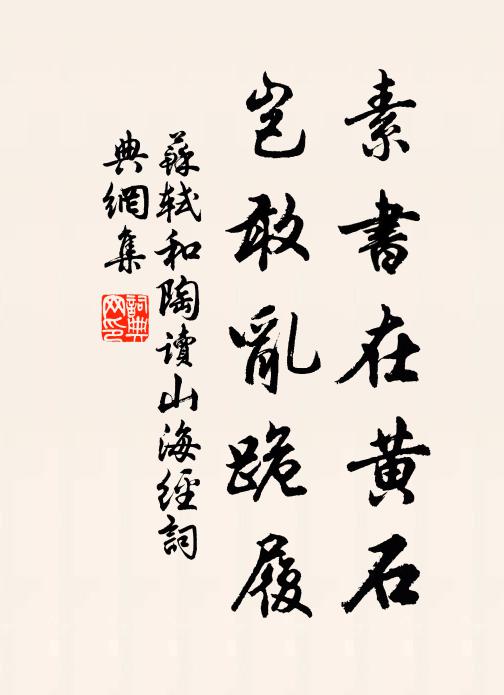 素書在黄石
豈敢亂跪履
蘇軾和陶讀山海經詞
典網集
詞典網印